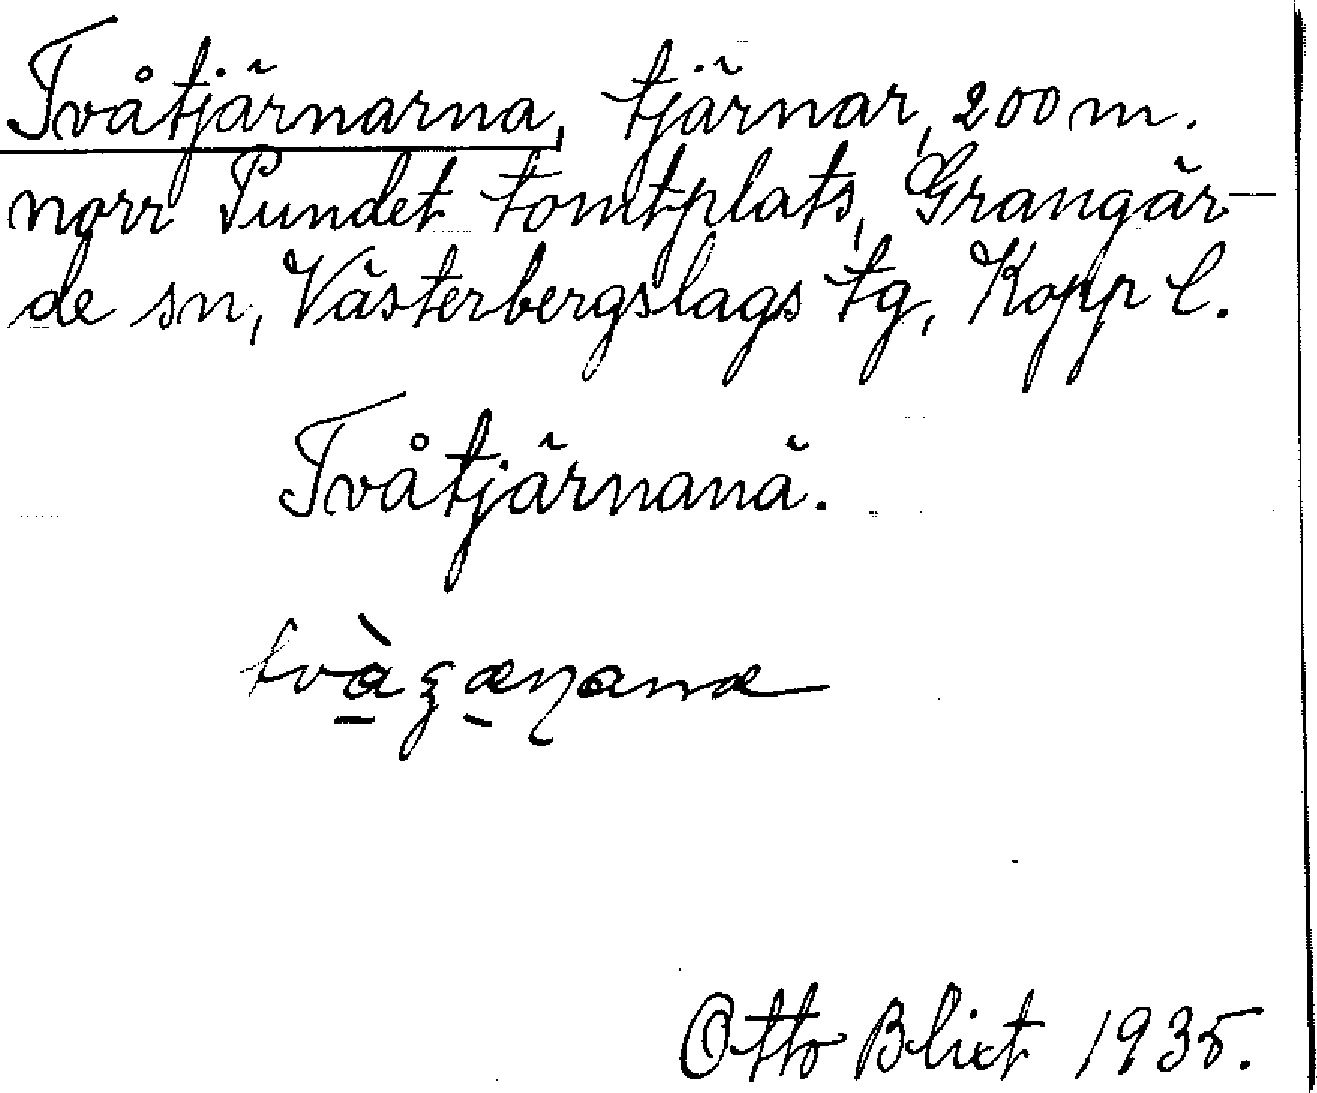 Tvåtjärnarna, tjärnar, 200 m.
norr Pundet tomtplats, Grangär-
de sn, Västerbergslags tg, Kopp l.
Tvåtjärnanä.
Otto Blixt 1935.